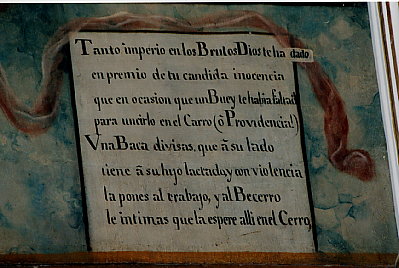 Tanto imperio en los Brutos Dios te ha dado
en premio de tu candida inocencia
que en ocasion que un Buey te habia faltad
para uncirlo en el Carro (ô Providencia!)
Vna Baca divisas, que â su lado
tiene â su hijo lactado, y con violencia
la pones al trabajo, y al Becerro
le intimas que la espere alli en el Cerro,